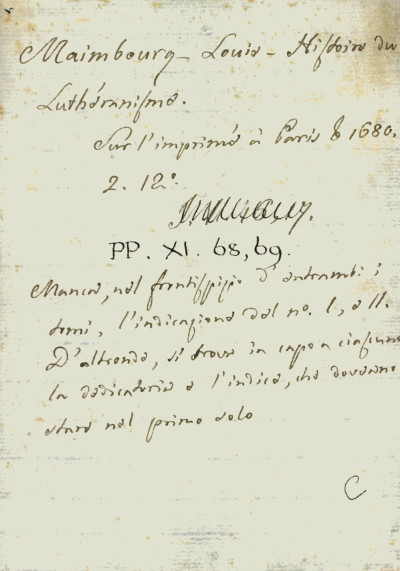 Maimbourg - Louis - Histoire du
Luthéranisme.
Sur l'imprimé à Paris 1680.
2. 12°.
PP. XI. 68, 69.
Manca, nel frontispizio d'entrambi i
tomi, l'indicazione del n.° I, e II.
D'altronde, si trova in capo a ciascuno
la dedicatoria e l'indice, che dovevano
stare nel primo solo
C